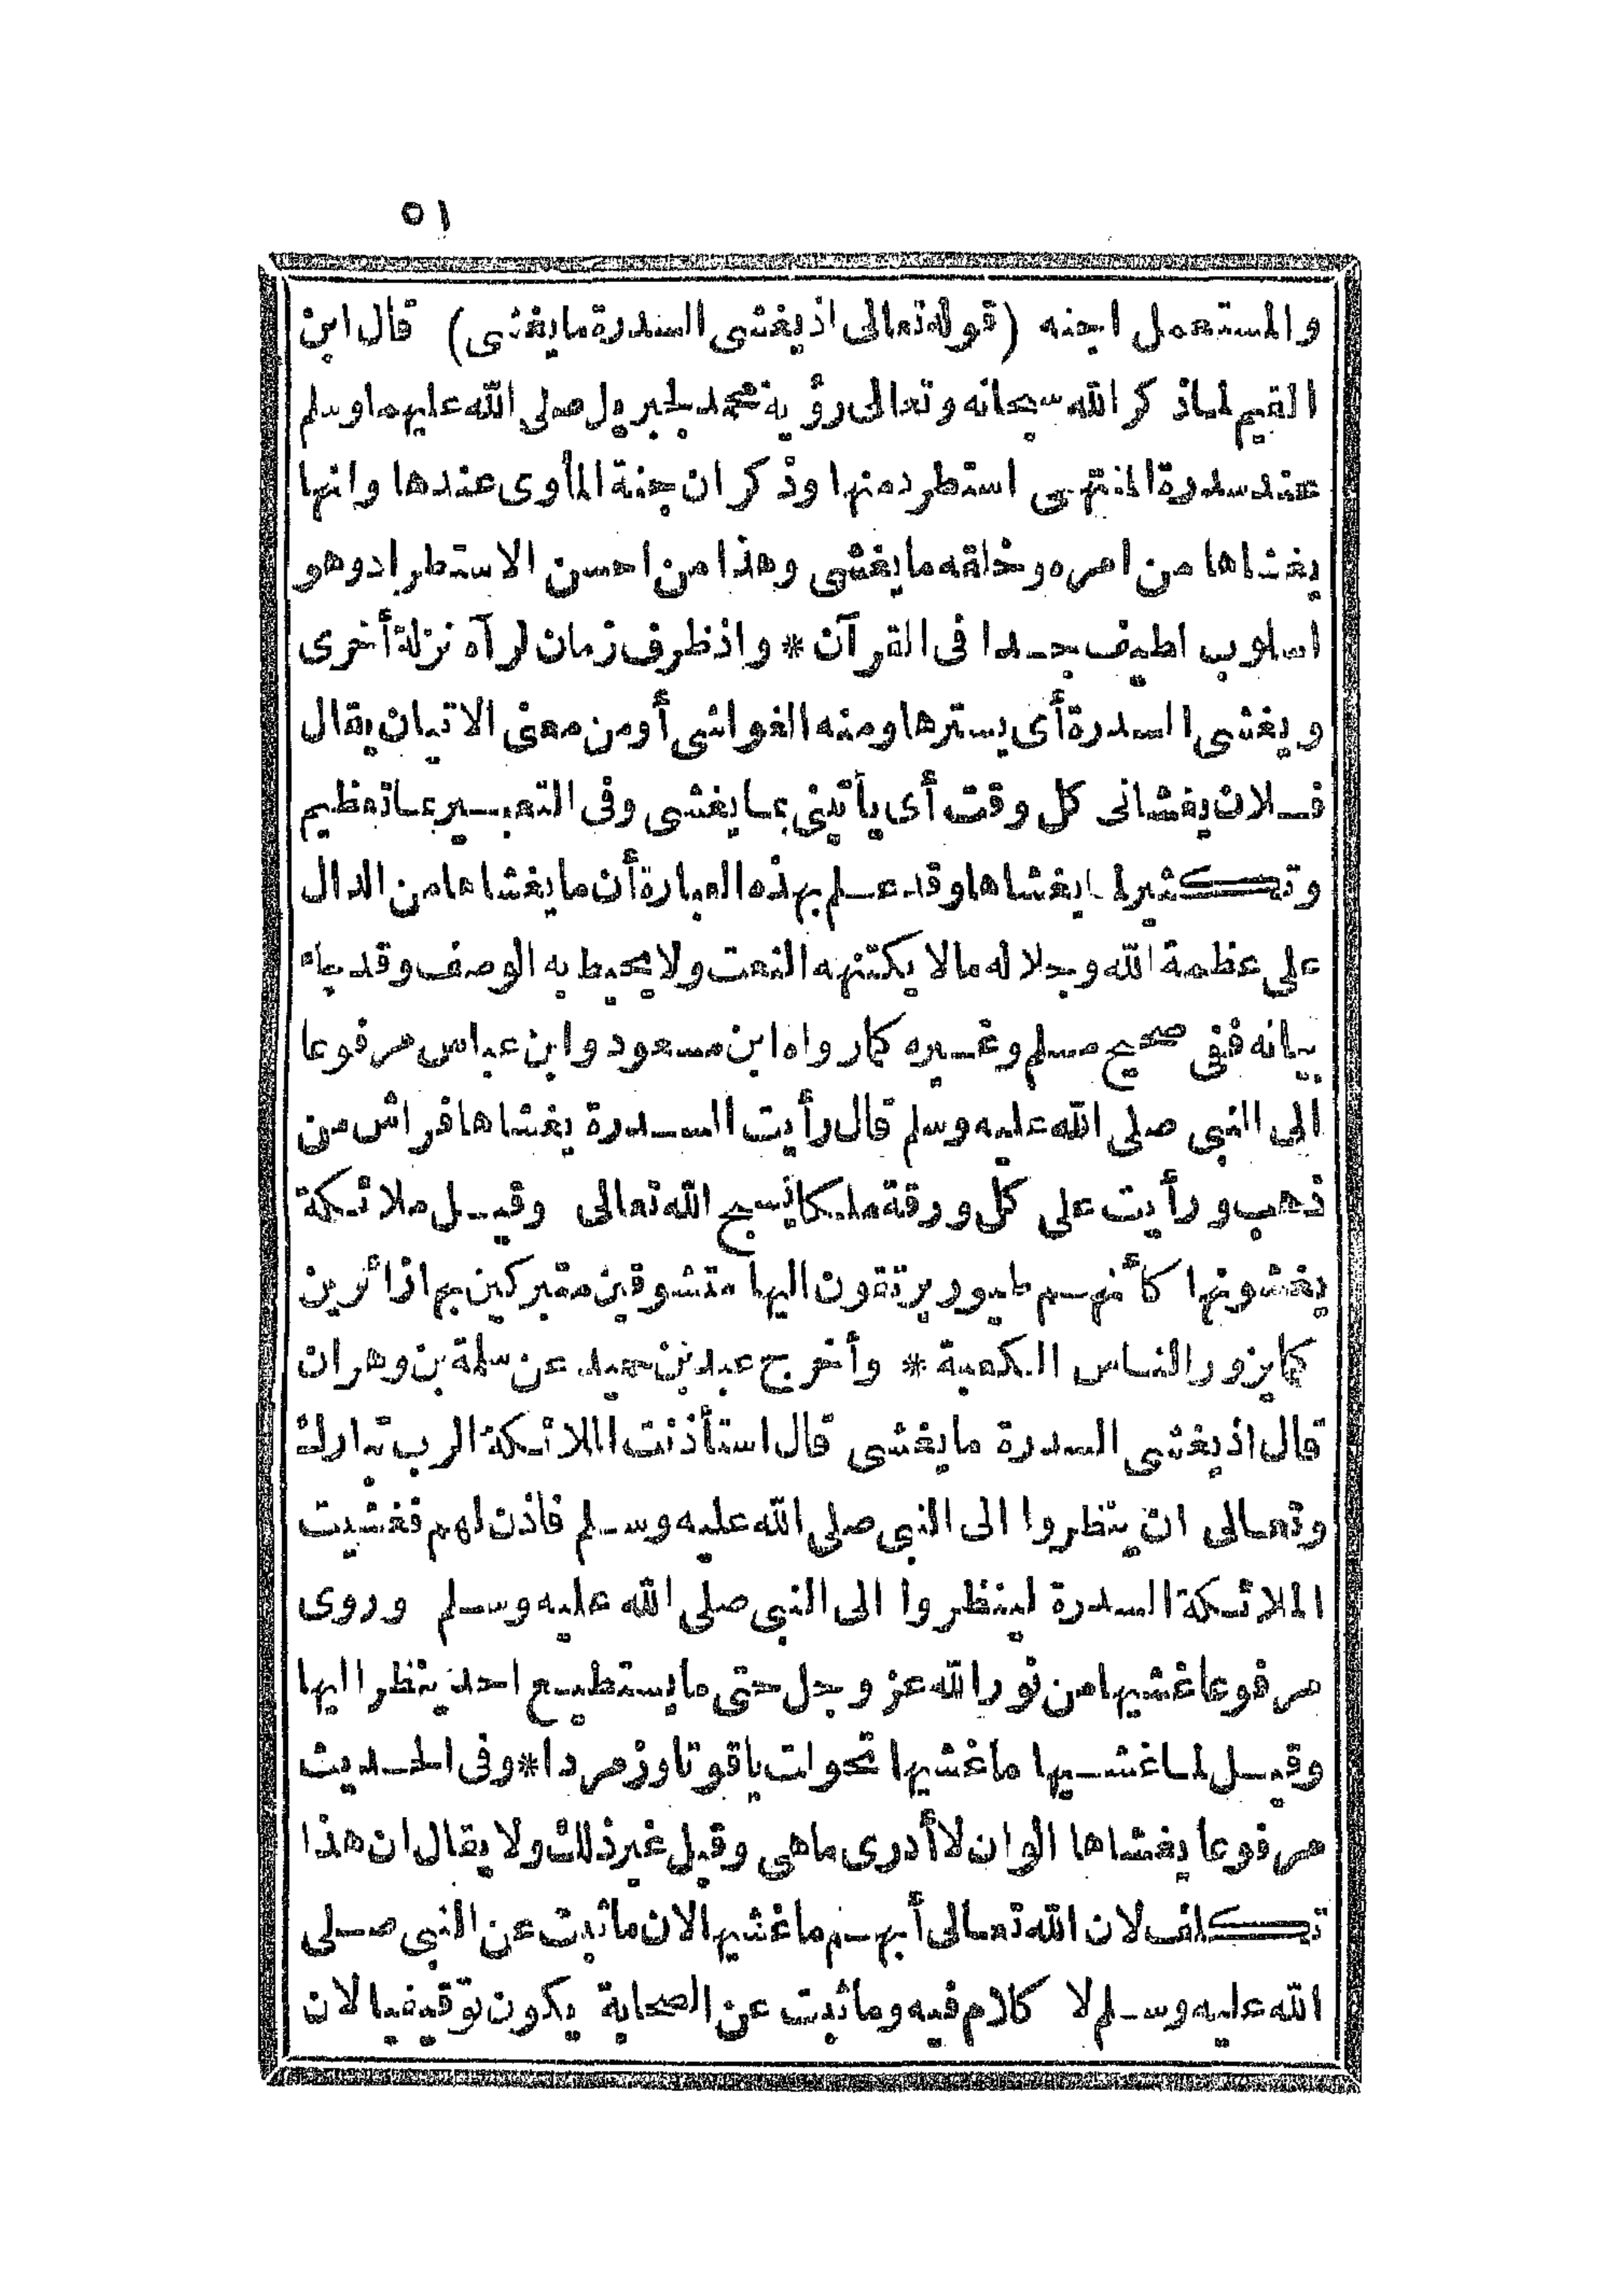 ٥١
والمستعمل اجنه (قوله تعالى اذ يغشى السدرة ما يغشى) قال ابن
القيم لما ذكر الله سبحانه وتعالى رؤية محمد لجبريل صلى الله عليهما وسلم
عند سدرة المنتهى استطرد منها وذكر ان جنة المأوى عندها وانها
يغشاها من امره وخلقه ما يغشى وهذا من احسن الاستطراد وهو
اسلوب لطيف جدا فى القرآن * واذ ظرف زمان لرآه نزلة أخرى
ويغشى السدرة أى يسترها ومنه الغواشى أو من معنى الاتيان يقال
فلان يغشانى كل وقت أى يأتينى بما يغشى وفى التعبير بما تعظيم
وتكثير لما يغشاها وقد علم بهذه العبارة أن ما يغشاها من الدال
على عظمة الله وجلاله مالا يكتنهه النعت ولا يحيط به الوصف وقد جاء
بيانه ففى صحيح مسلم وغيره كما رواه ابن مسعود وابن عباس مرفوعا
الى النبى صلى الله عليه وسلم قال رأيت السدرة يغشاها فراش من
ذهب ورأيت على كل ورقة ملكا يسبح الله تعالى وقيل ملائكة
يغشونها كأنهم طيور يرتقون اليها متشوقين متبركين بها زائرين
كما يزور الناس الكعبة * وأخرج عبد بن حميد عن سلمة بن وهران
قال اذ يغشى السدرة ما يغشى قال استأذنت الملائكة الرب تبارك
وتعالى ان ينظروا الى النبى صلى الله عليه وسلم فاذن لهم فغشيت
الملائكة السدرة لينظروا الى النبى صلى الله عليه وسلم وروى
مرفوعا غشيها من نور الله عز وجل حتى ما يستطيع احد ينظر اليها
وقيل لما غشيها ما غشيها تحولت ياقوتا وزمردا * وفى الحديث
مرفوعا يغشاها الوان لا أدرى ماهى وقيل غير ذلك ولا يقال ان هذا
تكلف لان الله تعالى أبهم ما غشيها لان ما ثبت عن النبى صلى
الله عليه وسلم لا كلام فيه وما ثبت عن الصحابة يكون توقيفيا لان